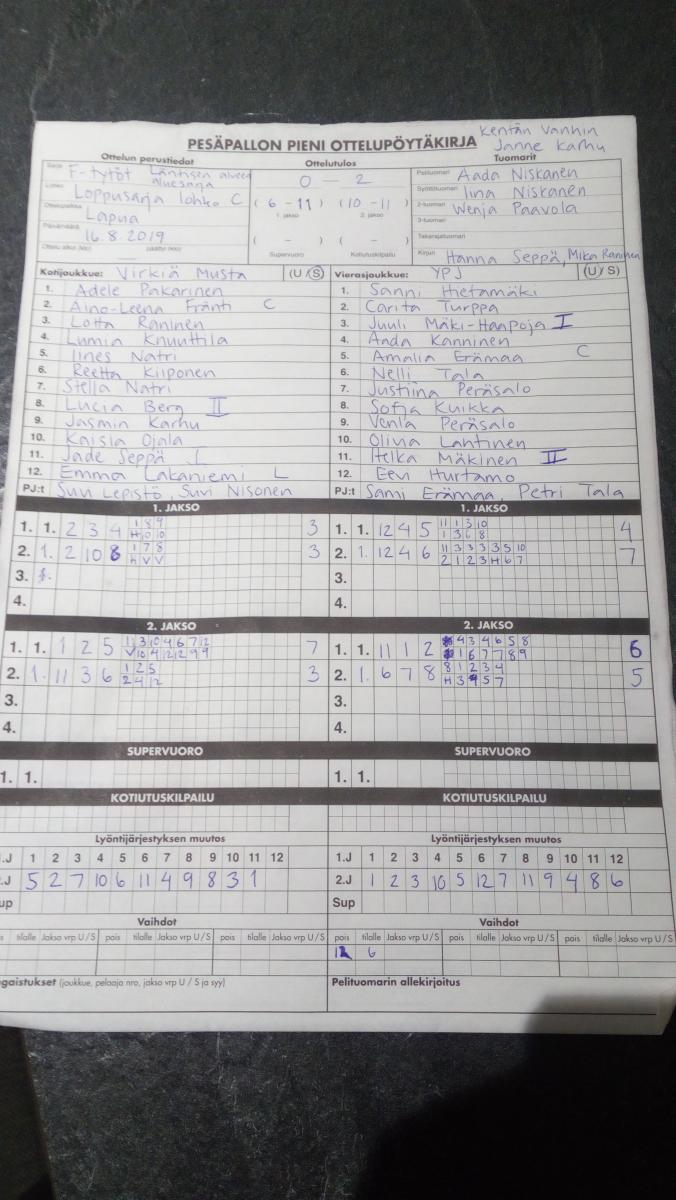 PESÄPALLON PIENI OTTELUPÖYTÄKIRJA
Kentän vanhin
Janne Karhu
Ottelun perustiedot
Ottelutulos
Tuomarit
Sarja F-tytöt Läntisen alueen aluesarja
Lohko Loppusarja lohko C
Ottelupaikka Lapua
Päivämäärä 16.8.2019
Ottelu alkoi (klo) päättyi (klo)
0 – 2
(6 – 11) (10 – 11)
1. jakso 2. jakso
( – ) ( – )
Supervuoro Kotiutuskilpailu
Pelituomari Aada Niskanen
Syöttötuomari Iina Niskanen
2-tuomari Wenja Paavola
3-tuomari
Takarajatuomari
Kirjuri Hanna Seppä, Mika Raninen
Kotijoukkue: Virkiä Musta (U/S)
1. Adele Pakarinen
2. Aino-Leena Fränti C
3. Lotta Raninen
4. Lumia Knuuttila
5. Iines Natri
6. Reetta Kiiponen
7. Stella Natri
8. Lucia Berg II
9. Jasmin Karhu
10. Kaisla Ojala
11. Jade Seppä I
12. Emma Lakaniemi L
PJ:t Suvi Lepistö, Suvi Nisonen
Vierasjoukkue: YPJ (U/S)
1. Sanni Hietamäki
2. Carita Turppa
3. Juuli Mäki-Haapoja I
4. Aada Kanninen
5. Amalia Erämaa C
6. Nelli Tala
7. Justiina Peräsalo
8. Sofja Kuikka
9. Venla Peräsalo
10. Oliva Lahtinen
11. Helka Mäkinen II
12. Eevi Hurtamo
PJ:t Sami Erämaa, Petri Tala
1. JAKSO
1. 1. 2 3 4 1 8 9 3
H 10 10
2. 1. 2 10 8 1 7 8 3
h V V
3.
4.
1. JAKSO
1. 1. 12 4 5 11 1 3 10 4
1 3 6 8
2. 1. 12 4 6 11 3 3 3 3 5 10 7
2 1 2 3 H 6 7
3.
4.
2. JAKSO
1. 1. 1 2 5 1 3 10 4 6 7 12 7
V 10 4 12 12 9 9
2. 1. 11 3 6 1 2 5 3
2 4 12
3.
4.
2. JAKSO
1. 1. 11 1 2 4 3 4 6 5 8 6
1 6 7 7 8 9
2. 1. 6 7 8 8 1 2 3 4 5
H 3 4 5 7
3.
4.
SUPERVUORO
1. 1.
SUPERVUORO
1. 1.
KOTIUTUSKILPAILU
KOTIUTUSKILPAILU
Lyöntijärjestyksen muutos
1.J 1 2 3 4 5 6 7 8 9 10 11 12
.J 5 2 7 10 6 11 4 9 8 3 1
up
Lyöntijärjestyksen muutos
1.J 1 2 3 4 5 6 7 8 9 10 11 12
2.J 1 2 3 10 5 12 7 11 9 4 8 6
Sup
Vaihdot
s tilalle Jakso vrp U/S pois tilalle Jakso vrp U/S pois tilalle Jakso vrp U/S
Vaihdot
pois tilalle Jakso vrp U/S pois tilalle Jakso vrp U/S pois tilalle Jakso vrp U/S
12 6
gaistukset (joukkue, pelaaja nro, jakso vrp U / S ja syy)
Pelituomarin allekirjoitus